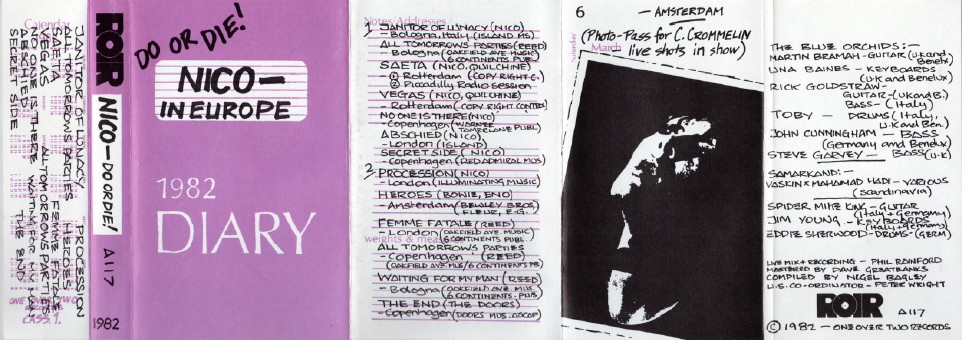 Calendar
JANITOR OF LUNACY
ALL TOMORROWS PARTIES
SAETA
VEGAS
NO ONE IS THERE
ABSCHIED
SECRET SIDE
PROCESSION
HEROES
FEMME FATALE
ALL TOMORROWS PARTIES
WAITING FOR MY MAN
THE END
ROIR
NICO—DO OR DIE!
A117
1982
DO OR DIE!
NICO—
IN EUROPE
1982
DIARY
Notes/Addresses
1 JANITOR OF LUNACY (NICO)
- Bologna, Italy (ISLAND MS)
ALL TOMORROWS PARTIES (REED)
Bologna (OAKFIELD AVE MUSIC/
6 CONTINENTS PUBL.)
SAETA (NICO, QUILCHINE)
① Rotterdam (COPY RIGHT C.)
② Picadilly Radio Session
VEGAS (NICO, QUILCHINE)
- Rotterdam (COPY RIGHT CONTROL)
NO ONE IS THERE (NICO)
- Copenhagen (WARNER
TAMERLANE PUBL)
ABSCHIED (NICO)
- London (ISLAND)
SECRET SIDE (NICO)
- Copenhagen (RED ADMIRAL MUS)
2 PROCESSION (NICO)
- London (ILLUMINATING MUSIC)
HEROES (BOWIE, ENO)
- Amsterdam (BEWLEY BROS
FLEUR, E.G.
FEMME FATALE (REED)
- London (OAKFIELD AVE. MUSIC/
6 CONTINENTS PUBL.
weights & meas
ALL TOMORROWS PARTIES
- Copenhagen (REED)
(OAKFIELD AVE. MUS/6 CONTINENTS PB)
WAITING FOR MY MAN (REED)
- Bologna (OAKFIELD AVE. MUS
6 CONTINENTS. PUB.
THE END (THE DOORS)
- Copenhagen (DOORS MUS. ASCAP)
6
— AMSTERDAM
(Photo-Pass for C. CROMMELIN
live shots in show)
Saturday
March
THE BLUE ORCHIDS:—
MARTIN BRAMAH - GUITAR (UK and
Benelx)
UNA BAINES - KEYBOARDS
(U.K and Benelux)
RICK GOLDSTRAW-
GUITAR - (UK and B.)
BASS - (Italy)
TOBY — DRUMS (Italy,
U.K and Ben.)
JOHN CUNNINGHAM — BASS
(Germany and Benelx)
STEVE GARVEY — BASS (U-K)
SAMARKAND:—
VASKIN & MAHAMAD HADI - VARIOUS
(Scandinavia)
SPIDER MIKE KING - GUITAR
(Italy + Germany)
JIM YOUNG - KEYBOARDS
(Italy + Germany)
EDDIE SHERWOOD - DRUMS - (GERM)
LIVE MIX + RECORDING - PHIL RAINFORD
MASTERED BY DAVE GREATBANKS
COMPILED BY NIGEL BAGLEY
U.S. CO-ORDINATOR - PETER WRIGHT
ROIR A117
© 1982 — ONE OVER TWO RECORDS